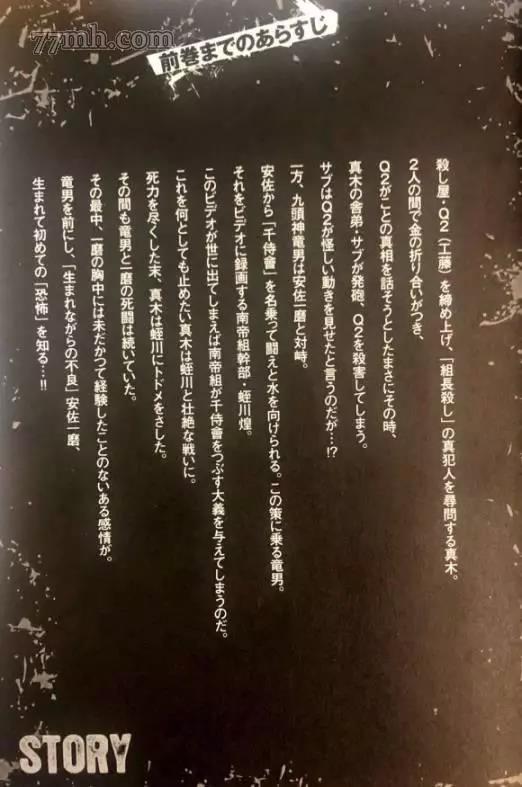 77mh.com
前巻までのあらすじ
殺し屋・Q2(工藤)を締め上げ、「組長殺し」の真犯人を尋問する真木。
2人の間で金の折り合いがつき、
Q2がことの真相を話そうとしたまさにその時、
真木の舎弟・サブが発砲、Q2を殺害してしまう。
サブはQ2が怪しい動きを見せたと言うのだが…!?
一方、九頭神竜男は安佐一磨と対峙。
安佐から「千侍會」を名乗って闘えと水を向けられる。この策に乗る竜男。
それをビデオに録画する南帝組幹部・蛭川煌。
このビデオが世に出てしまえば南帝組が千侍會をつぶす大義を与えてしまうのだ。
これを何としても止めたい真木は蛭川と壮絶な戦いに。
死力を尽くした末、真木は蛭川にトドメをさした。
その間も竜男と一磨の死闘は続いていた。
その最中、一磨の胸中には未だかつて経験したことのないある感情が。
竜男を前にし、「生まれながらの不良」安佐一磨、
生まれて初めての「恐怖」を知る…!!
STORY